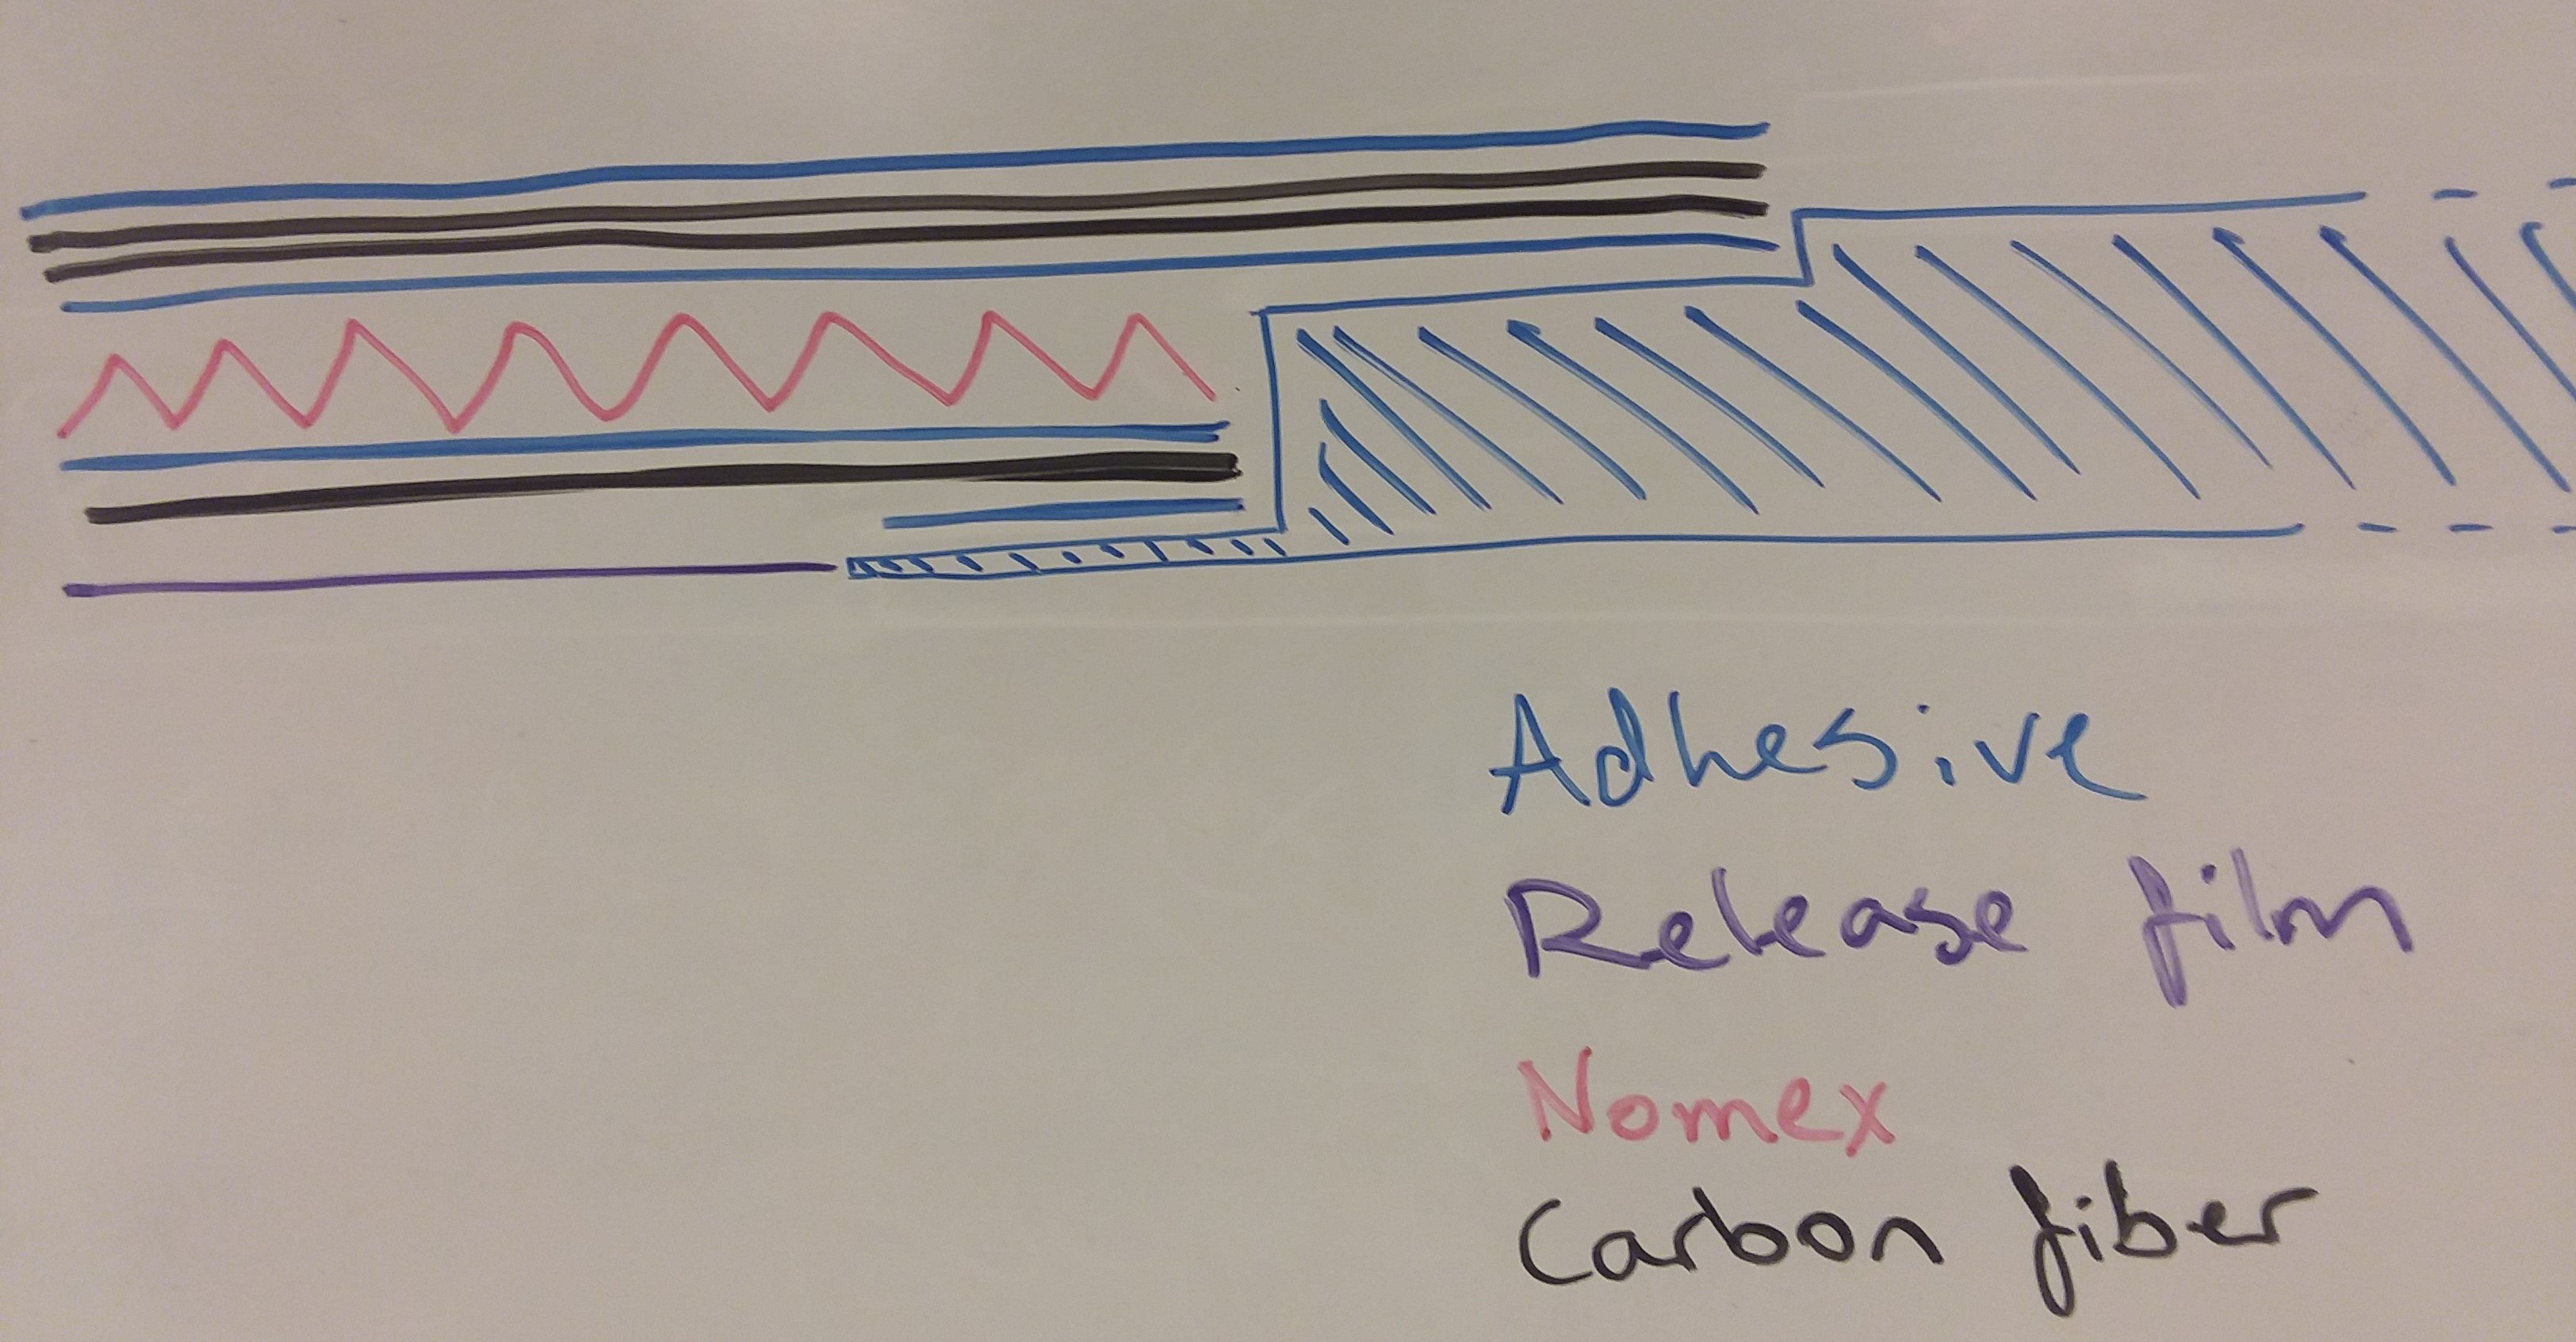 Adhesive
Release film
Nomex
Carbon fiber